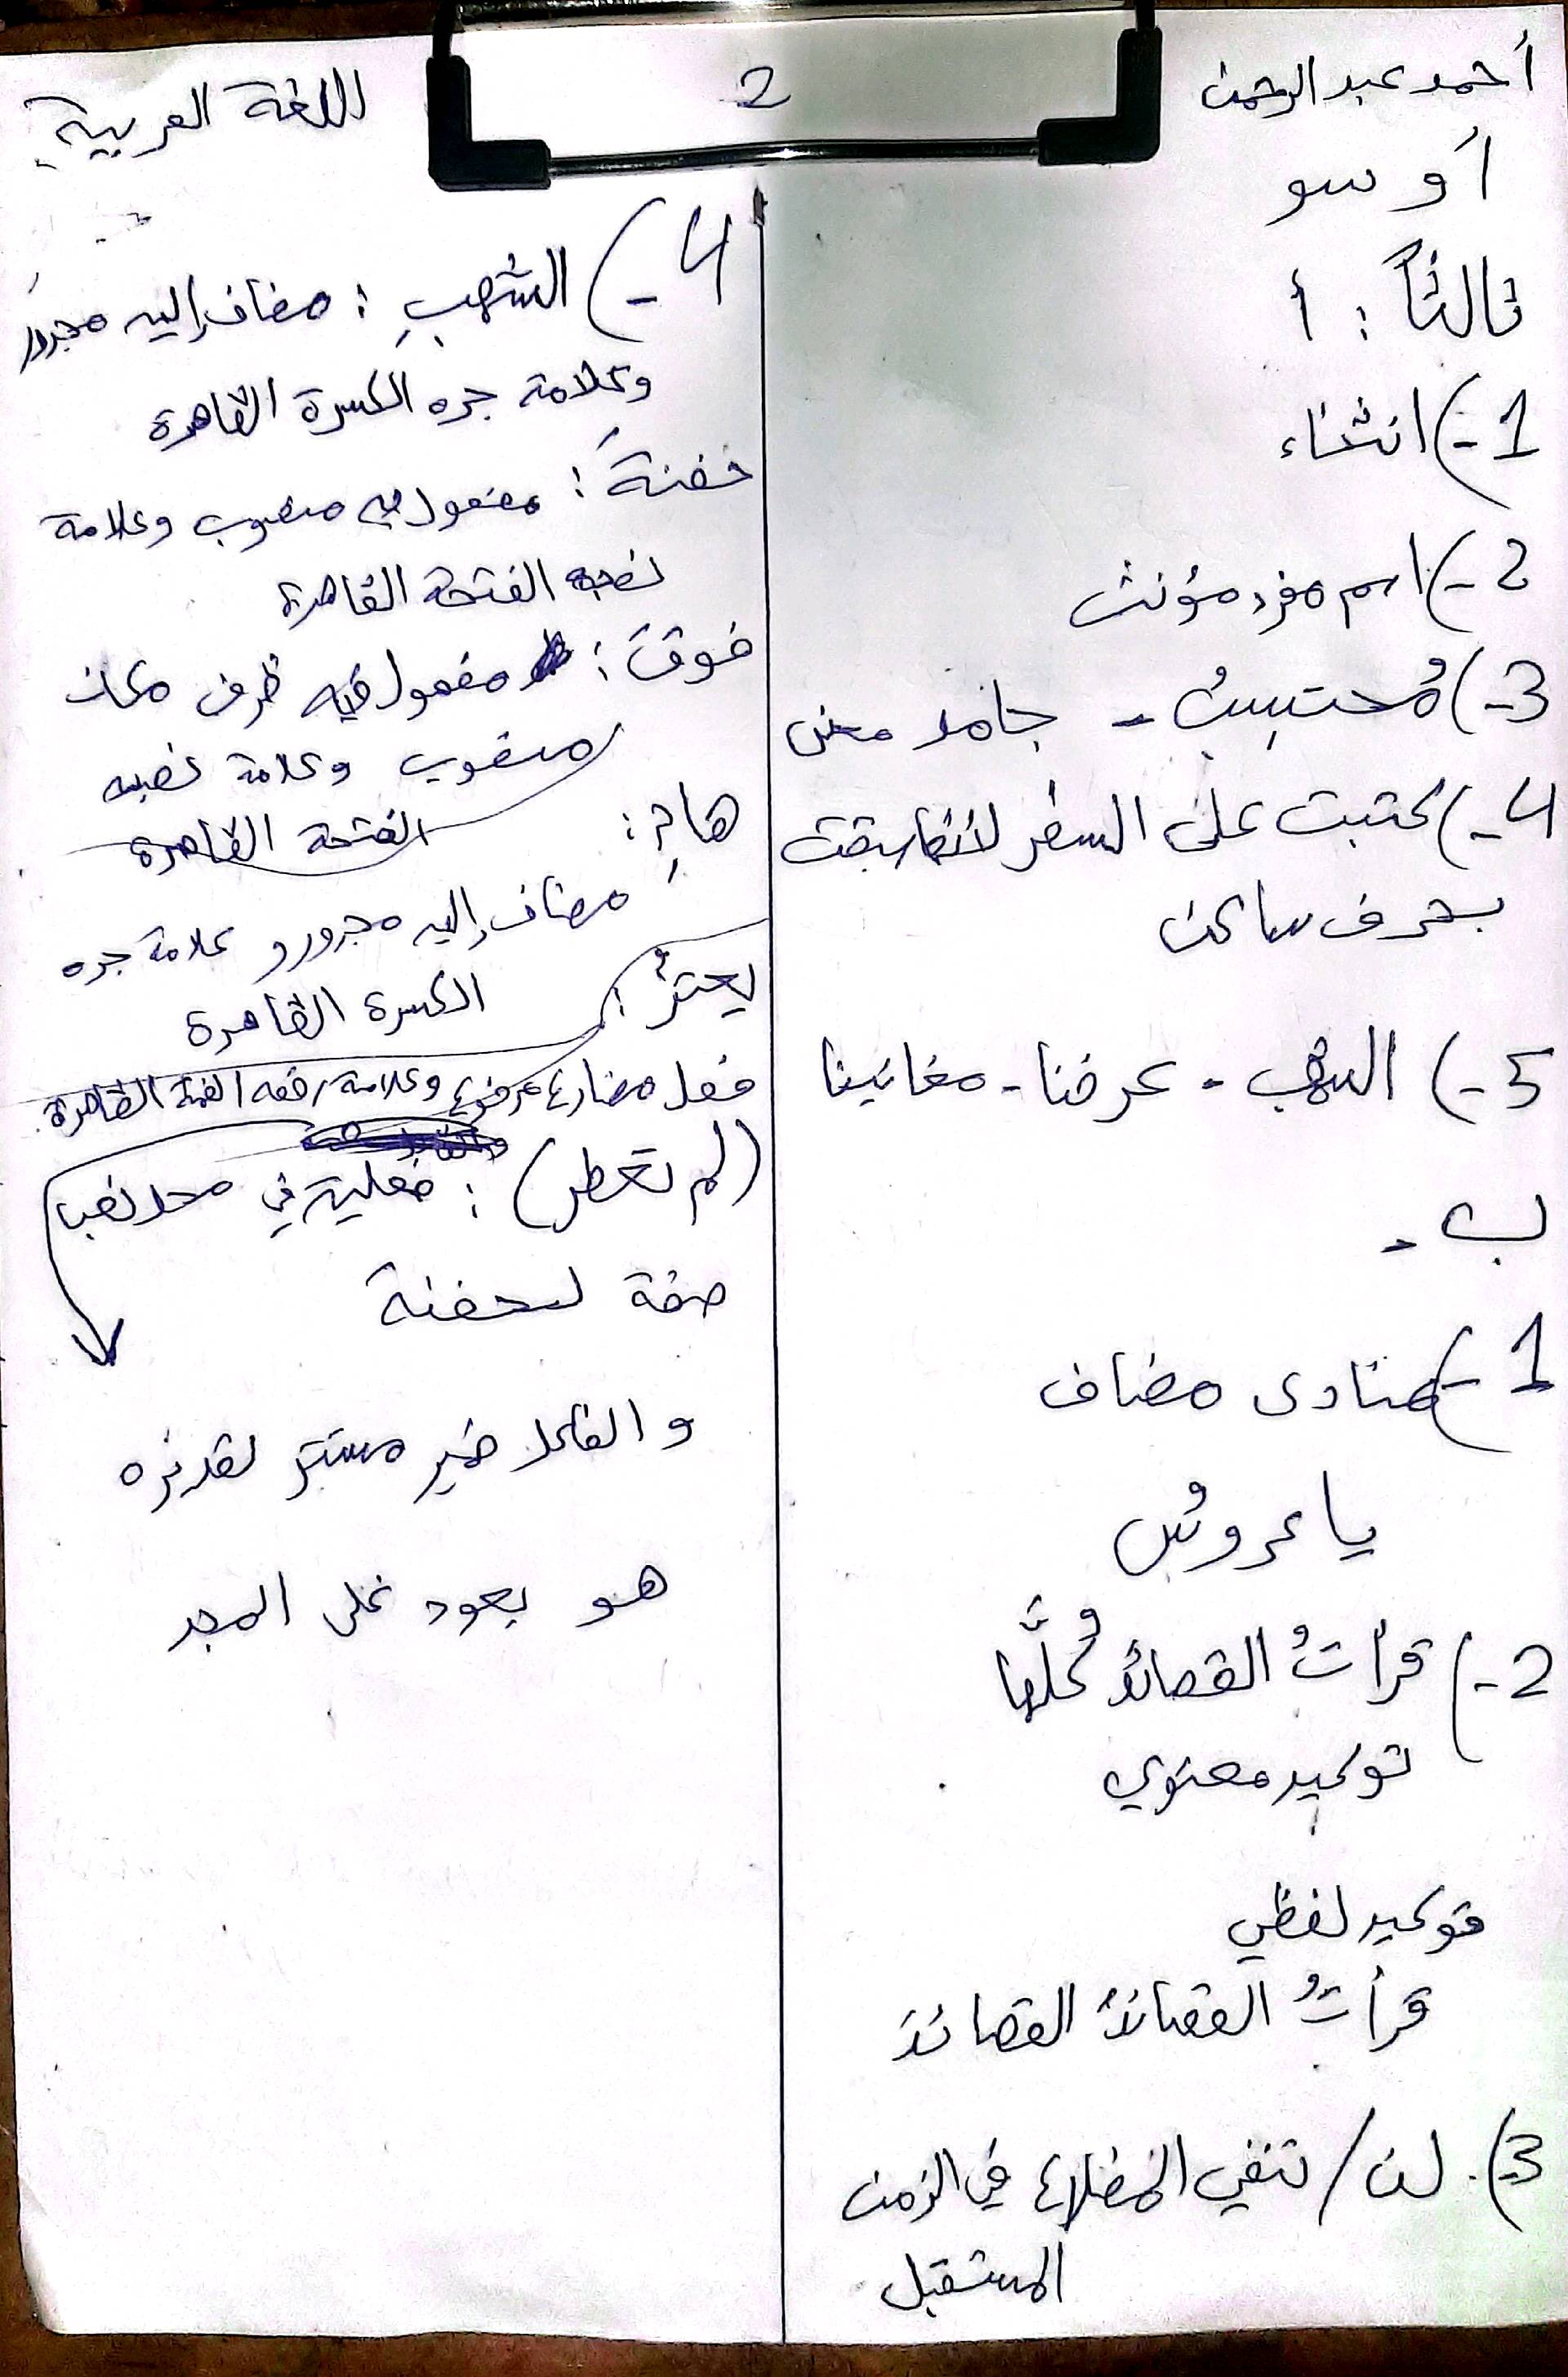 أحمد عبد الرحمن
2
اللغة العربية
أوسو
ثالثاً : أ
1-) انشاء
2-) اسم مفرد مؤنث
3-) مُحتسِبُ - جامد معنى
4-) كتبت على السطر لأنها سبقت
بحرف ساكن
5-) الشهب - عرضنا - مغانينا
ب -
1-) منادى مضاف
يا عروسُ
2-) قرأتُ القصائدَ كُلَّها
توكيد معنوي
توكيد لفظي
قرأتُ القصائدَ القصائدَ
3-) لن / تنفي المضارع في الزمن
المستقبل
4-) الشهبِ : مضاف إليه مجرور
وعلامة جره الكسرة الظاهرة
حفنةً : مفعول به منصوب وعلامة
نصبه الفتحة الظاهرة
فوقَ : مفعول فيه ظرف مكان
منصوب وعلامة نصبه
الفتحة الظاهرة
هامِ :
مضاف إليه مجرور و علامة جره
الكسرة الظاهرة
يعتزُّ :
فعل مضارع مرفوع وعلامة رفعه الضمة الظاهرة
(لم تعطر) : فعلية في محل نصب
صفة لحفنة
و الفاعل ضمير مستتر تقديره
هو يعود على المجد